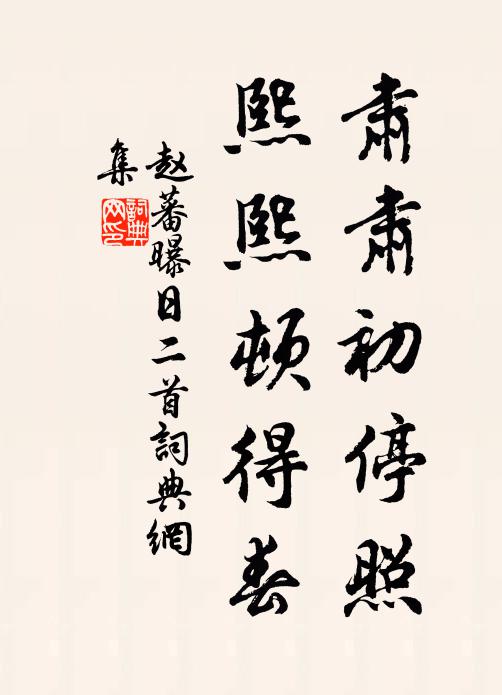 肅肅初停照
熙熙頓得春
赵蕃曝日二首詞典網
集
詞典
网印